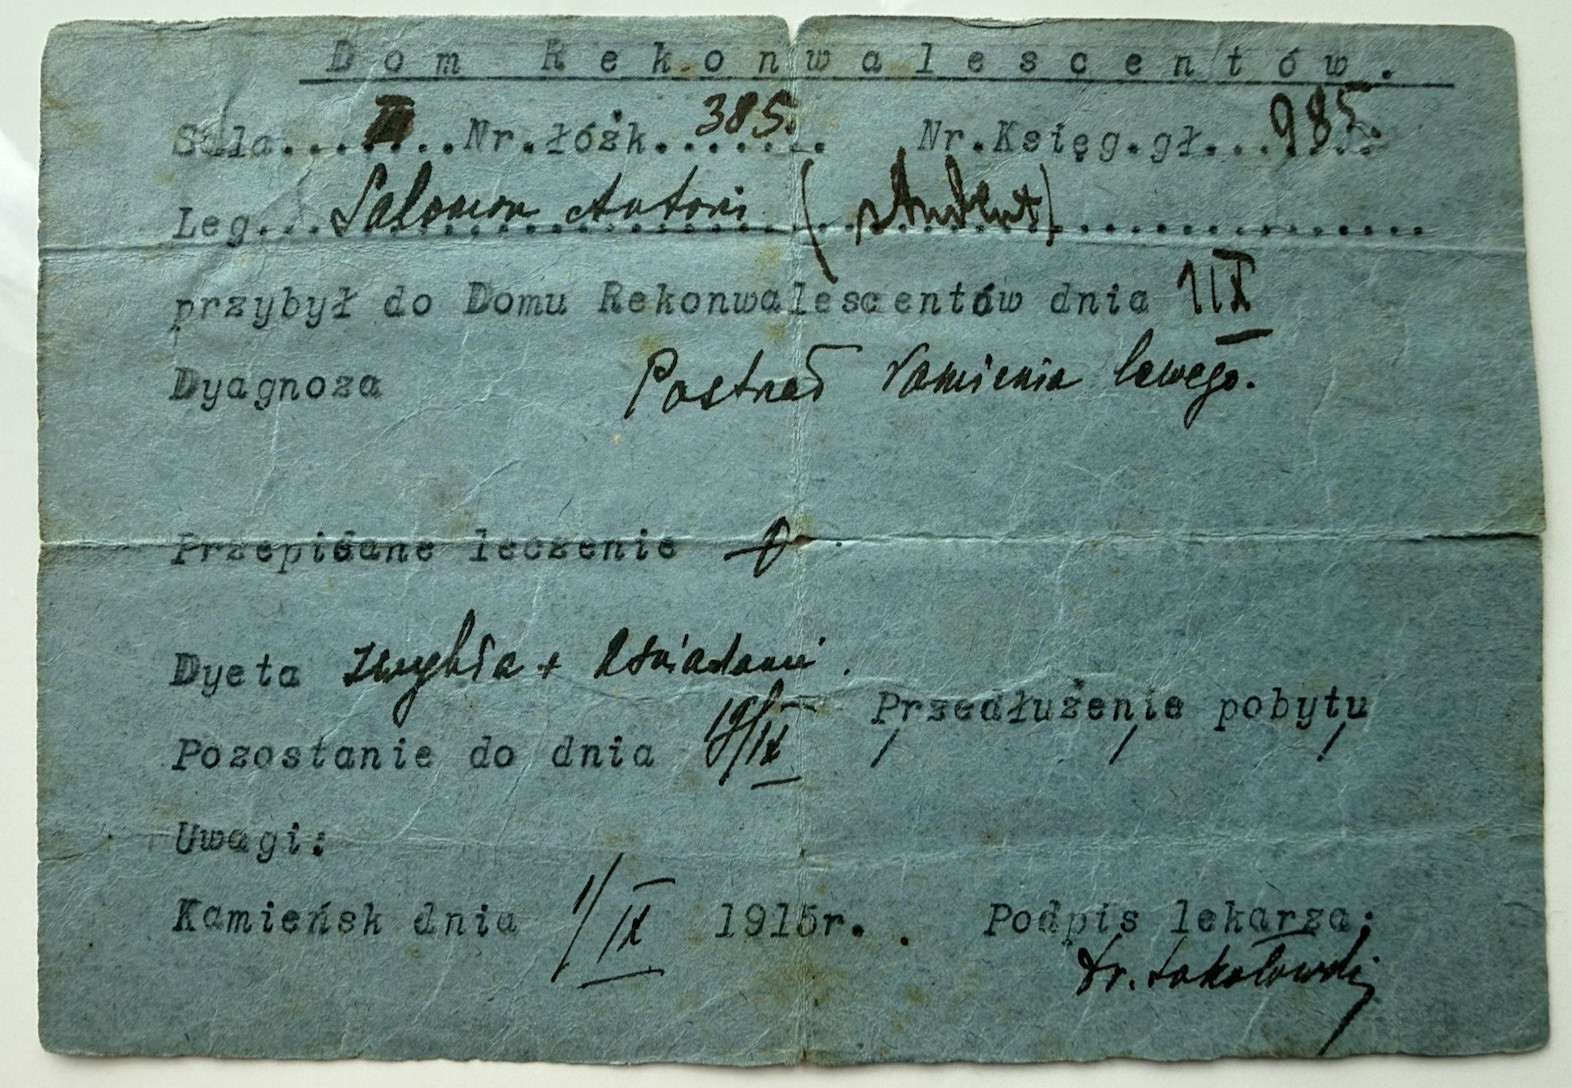 Dom Rekonwalescentów.
Sala....III...Nr.łóżk. 385. Nr.Księg.gł. 985.
Leg... Salomon Antoni (student)
przybył do Domu Rekonwalescentów dnia 1 IX
Dyagnoza Postrzał ramienia lewego.
Przepisane leczenie
Dyeta zwykła + 2 śniadanie.
Przedłużenie pobytu
Pozostanie do dnia 19/IX
Uwagi:
Kamieńsk dnia 1/IX 1915r. Podpis lekarza:
Dr. Sokołowski